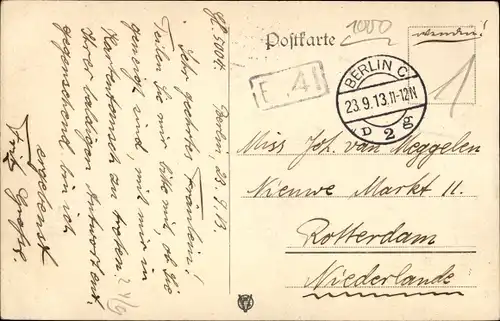 Postkarte
1000
wenden!
1
BERLIN C
23.9.13.11-12N
D 2 g
F 41
Miss Joh. van Meggelen
Nieuwe Markt 11.
Rotterdam
Niederlande
Berlin, 23.9.13
Sehr geehrtes Fräulein!
Teilen Sie mir bitte mit ob Sie
geneigt sind, mit mir in
Kartentausch zu treten
Ihrer baldigen Antwort ent-
gegensehend bin ich
ergebenst
Fritz